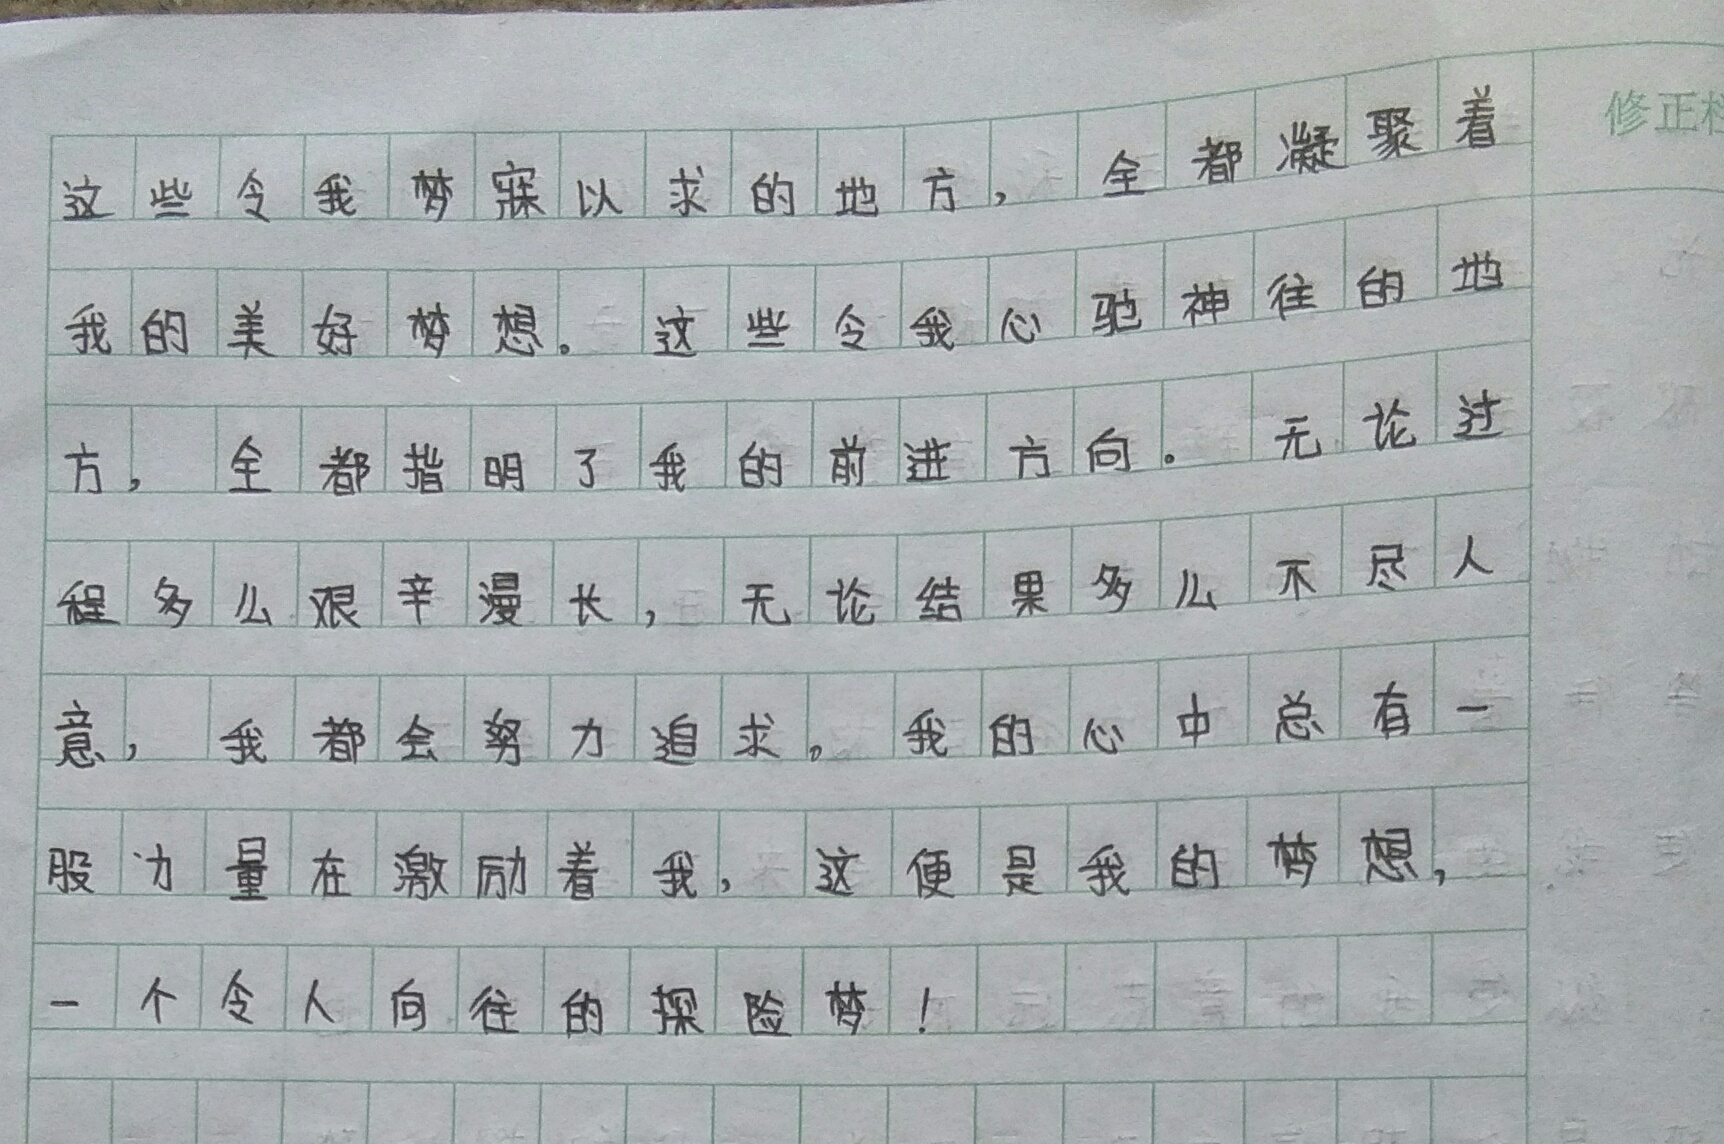 修正栏
这些令我梦寐以求的地方，全都凝聚着
我的美好梦想。这些令我心驰神往的地
方，全都指明了我的前进方向。无论过
程多么艰辛漫长，无论结果多么不尽人
意，我都会努力追求。我的心中总有一
股力量在激励着我，这便是我的梦想，
一个令人向往的探险梦！